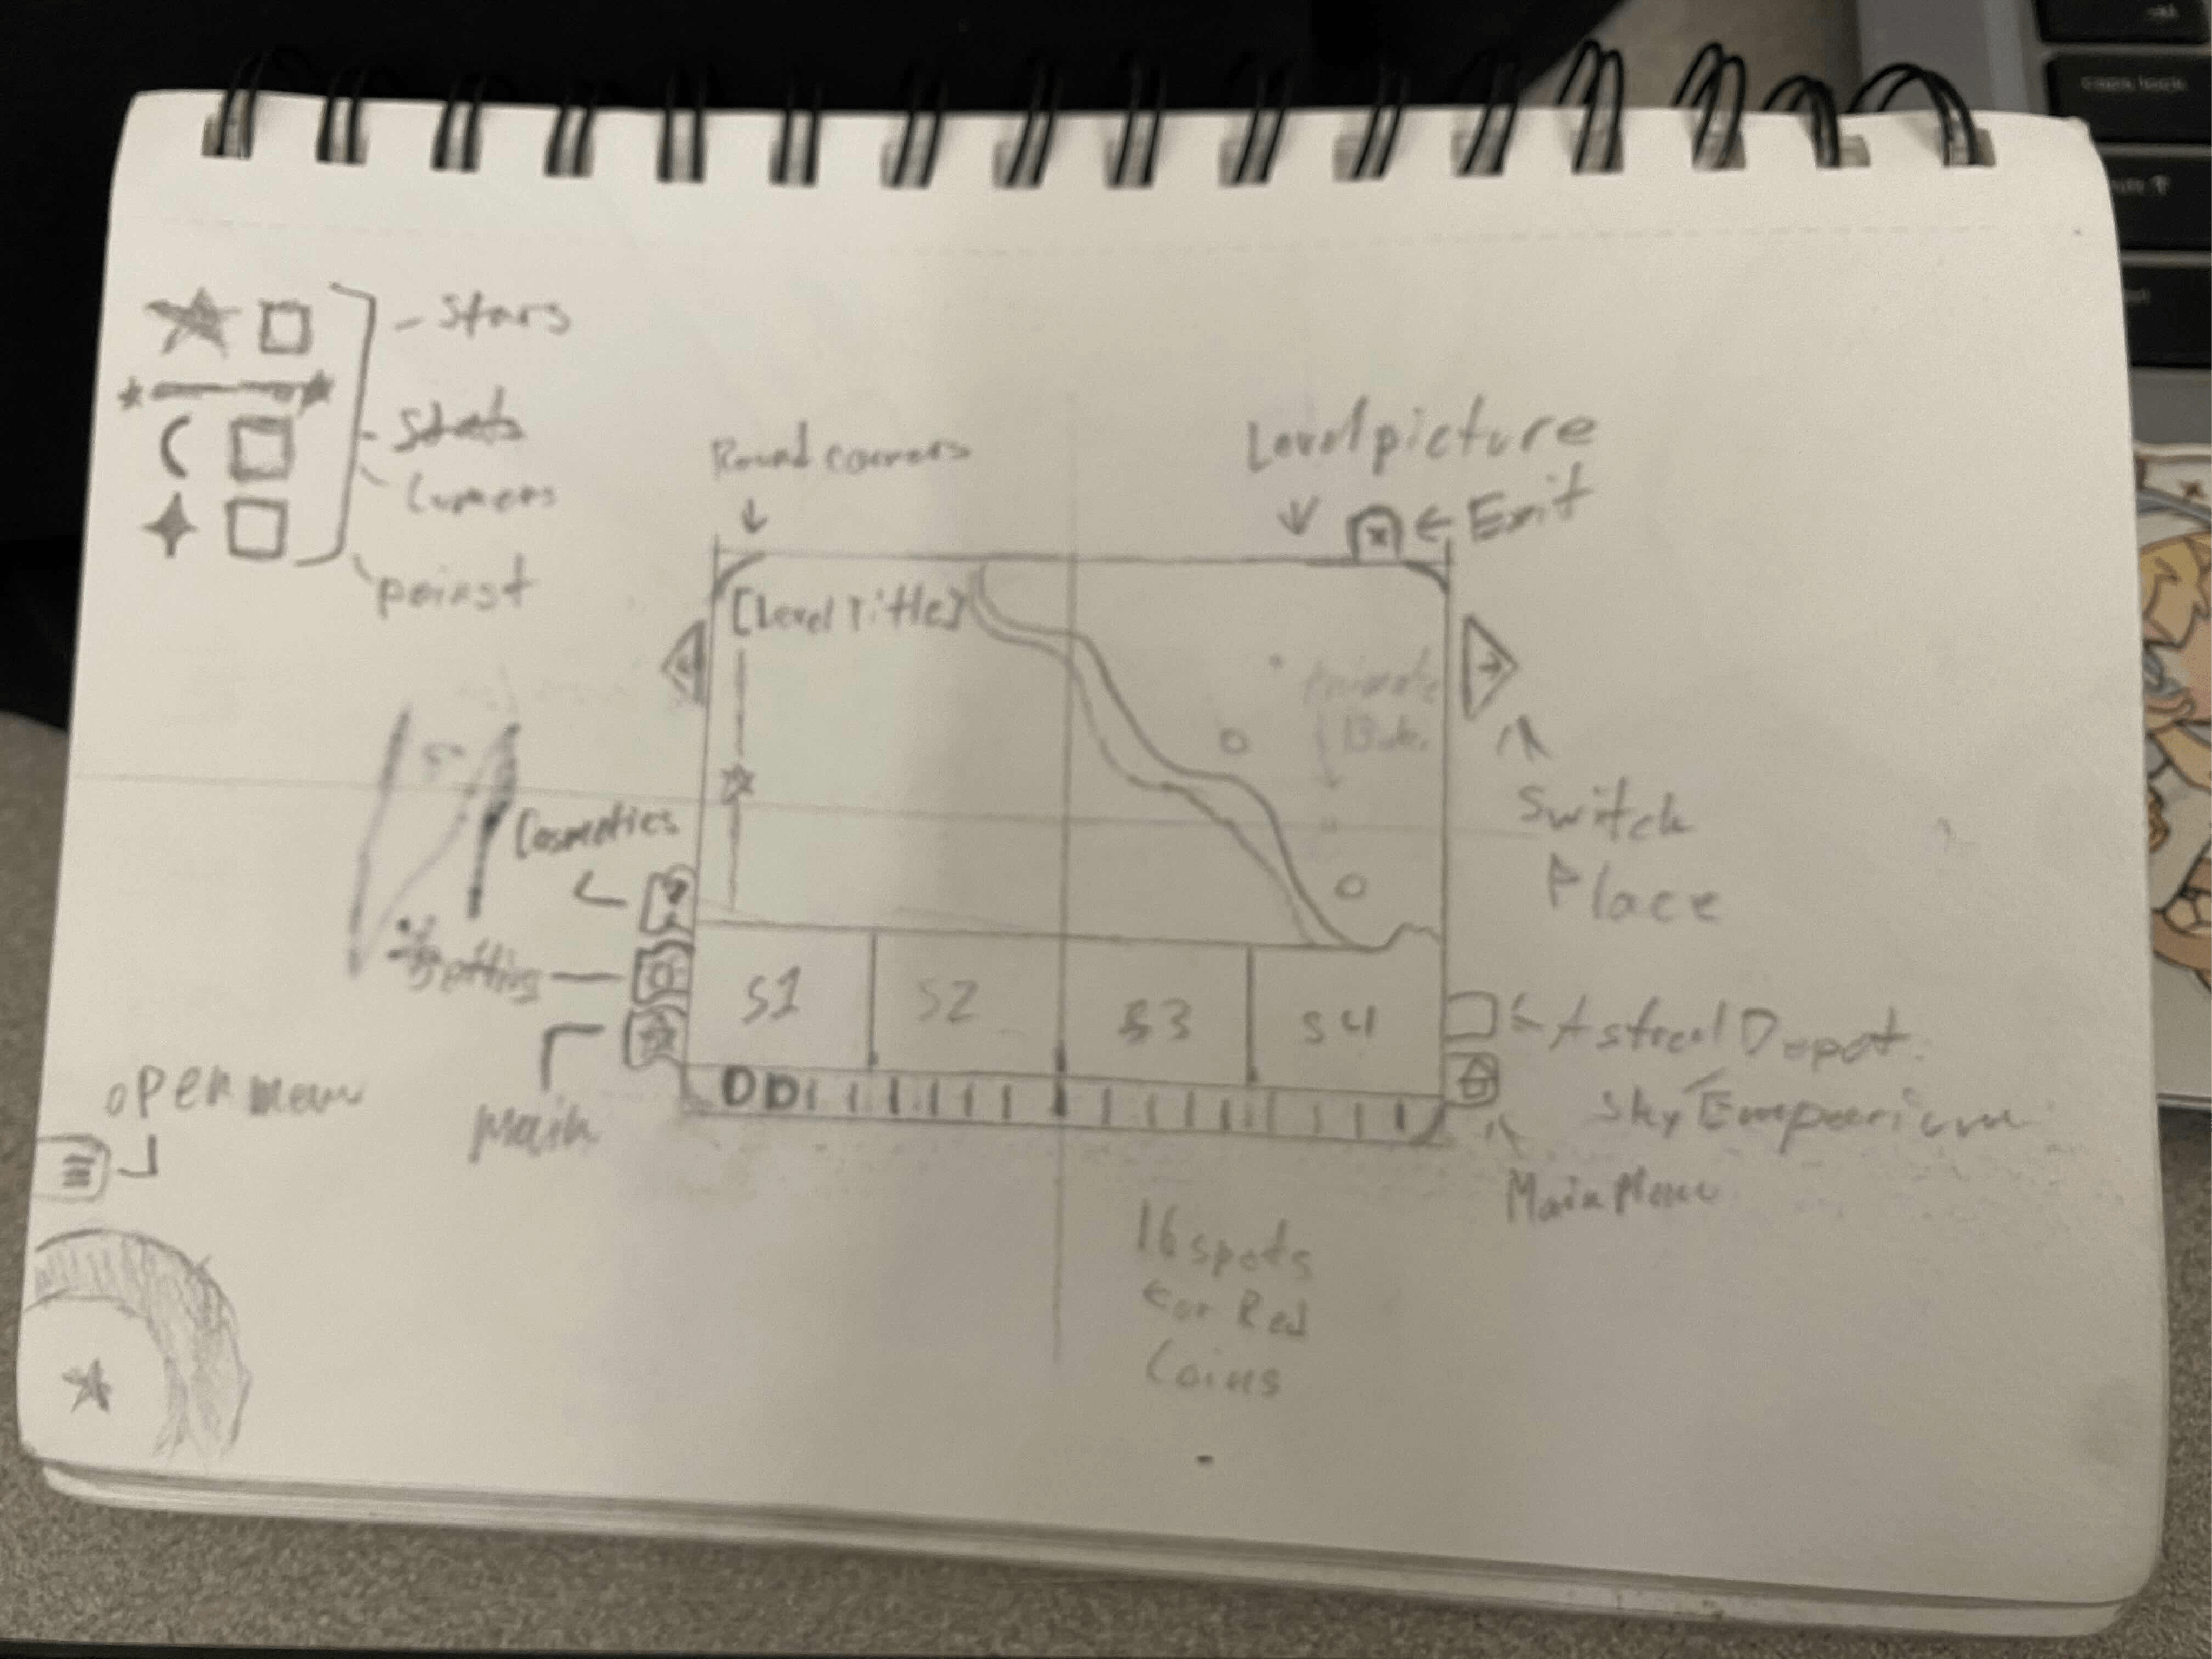 - Stars
- Stats
Lumens
poinst
Round corners
Level picture
x
← Exit
[Level Title]
Switch
Place
Cosmetics
Setting
Main
open menu
S1
S2
S3
S4
Astreal Depot
Sky Emporium
Main Menu
16 spots
for Red
Coins
caps lock